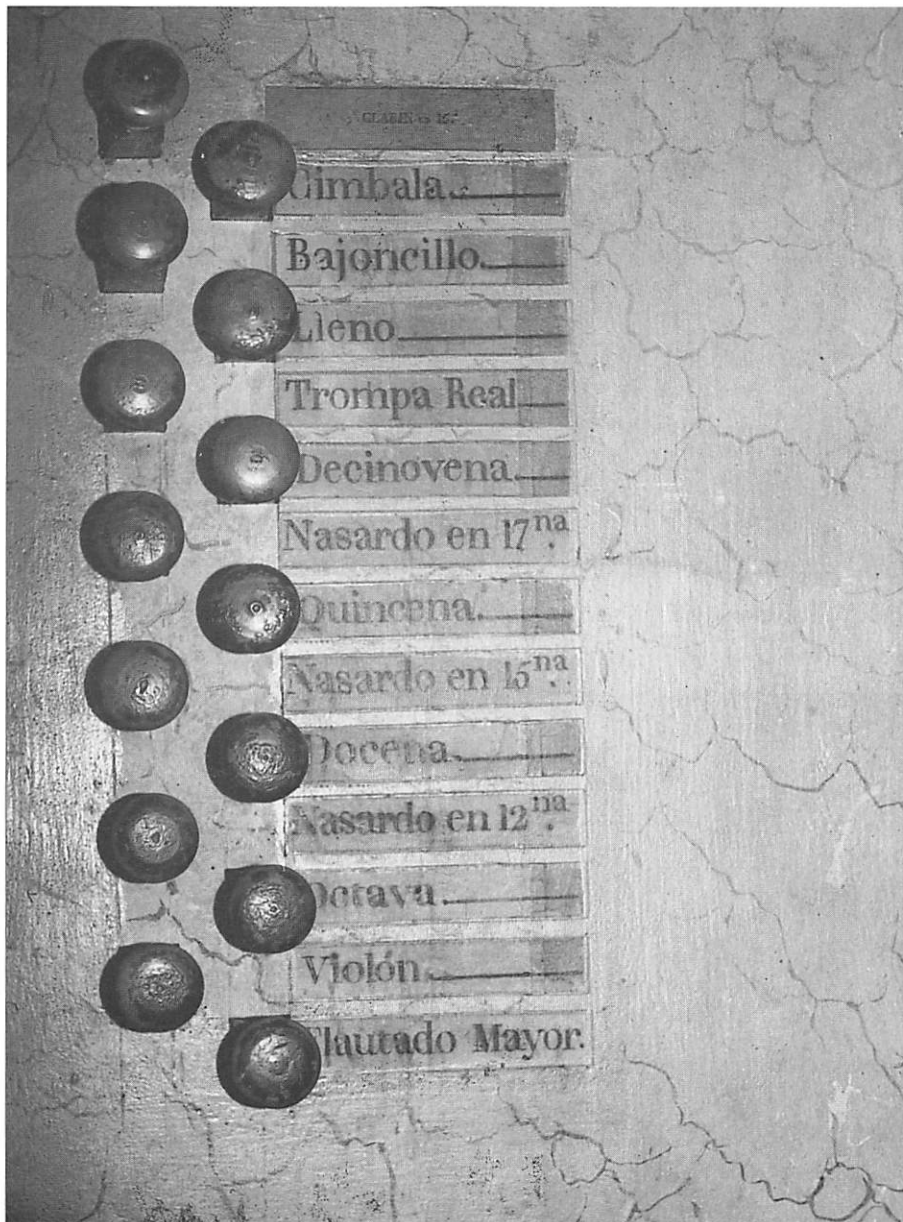 CLARIN en 15.ª
Cimbala.
Bajoncillo.
Lleno
Trompa Real
Decinovena.
Nasardo en 17.na
Quincena.
Nasardo en 15.na
Docena.
Nasardo en 12.na
Octava.
Violón.
Flautado Mayor.